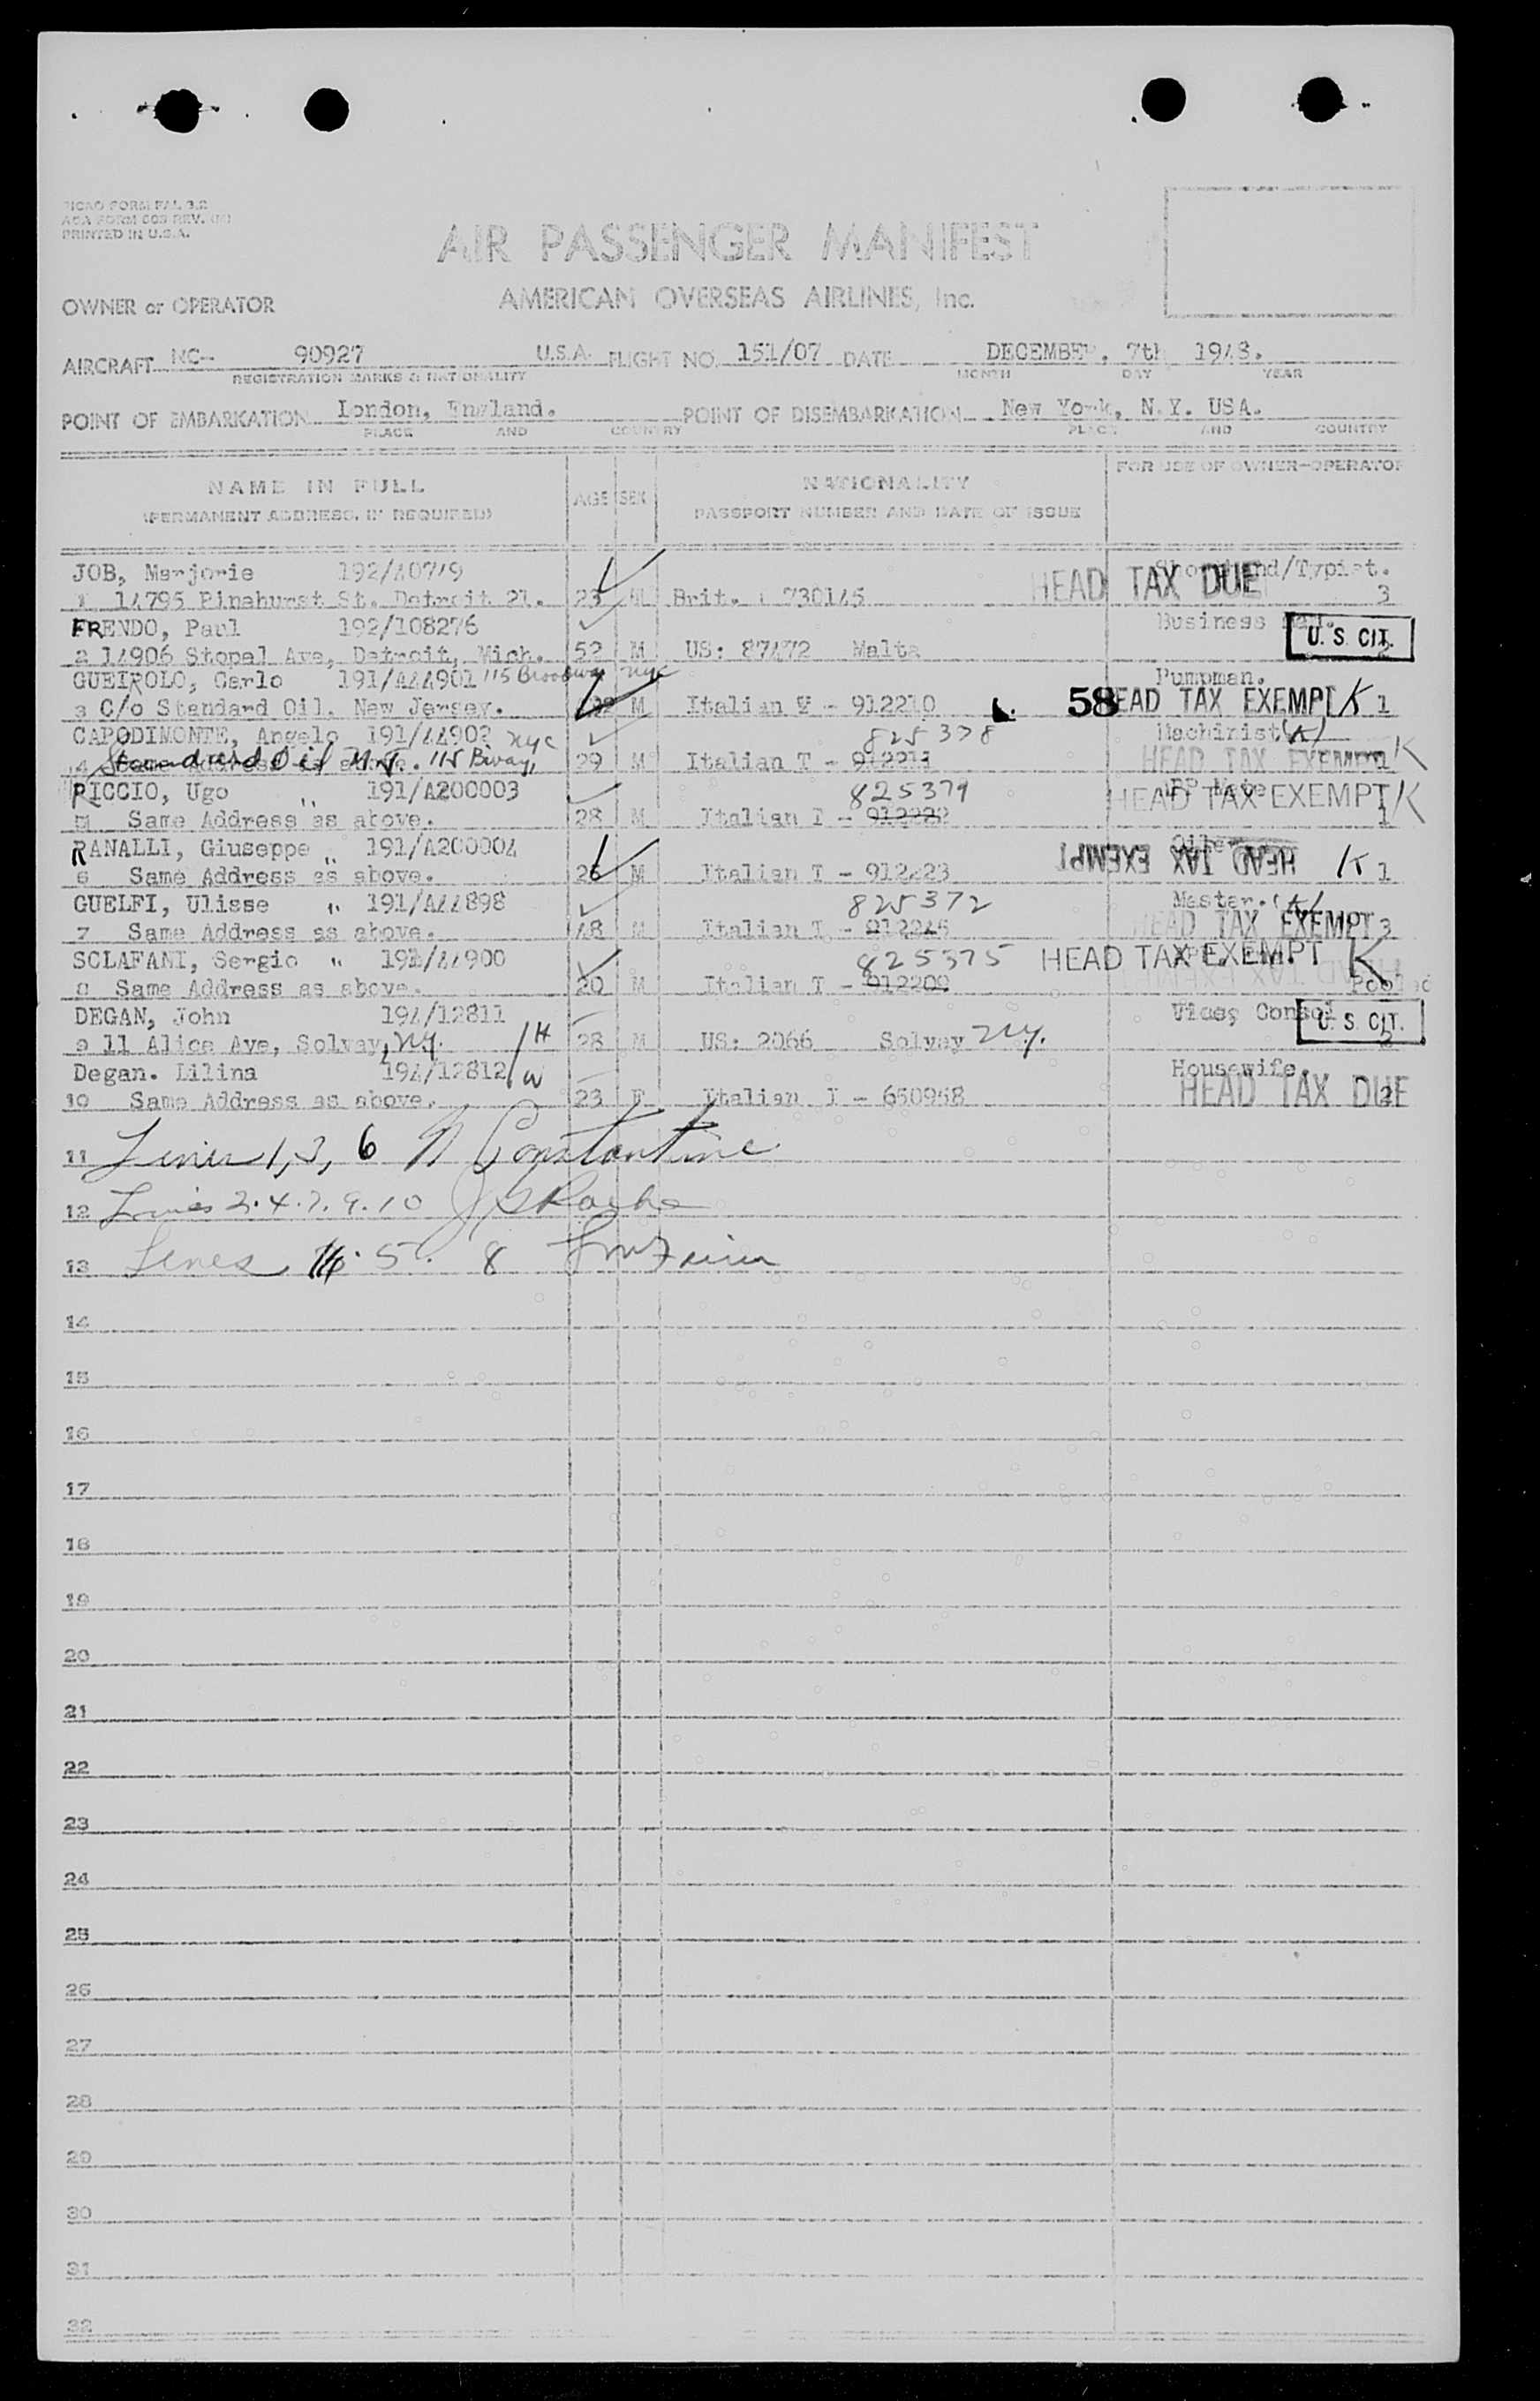 ICAO FORM PAL 3.2
AOA FORM 603 REV.
PRINTED IN U.S.A.
AIR PASSENGER MANIFEST
OWNER or OPERATOR AMERICAN OVERSEAS AIRLINES, Inc.
AIRCRAFT NC- 90927 U.S.A. FLIGHT NO. 151/07 DATE DECEMBER, 7th 1948.
REGISTRATION MARKS & NATIONALITY MONTH DAY YEAR
POINT OF EMBARKATION London, England. POINT OF DISEMBARKATION New York, N.Y. USA.
PLACE AND COUNTRY PLACE AND COUNTRY
NAME IN FULL AGE SEX NATIONALITY FOR USE OF OWNER-OPERATOR
(PERMANENT ADDRESS, IF REQUIRED) PASSPORT NUMBER AND DATE OF ISSUE
JOB, Marjorie 192/40749 Shorthand/Typist.
1 14795 Pinehurst St. Detroit 21. 23 Brit. 730145 HEAD TAX DUE 3
FRENDO, Paul 192/108276 Business
2 14906 Stopel Ave, Detroit, Mich. 52 M US: 87472 Malta U. S. CIT.
GUEIROLO, Carlo 191/A44901 115 Broadway nyc Pumpman.
3 C/o Standard Oil, New Jersey. M Italian - 912210 58 HEAD TAX EXEMPT K 1
CAPODIMONTE, Angelo 191/44902 nyc 825378 Machinist (K)
4 Standard Oil N.J. 115 Bway, 29 M Italian T - HEAD TAX EXEMPT K
RICCIO, Ugo " 191/A200003 825379
5 Same Address as above. 28 M Italian T - HEAD TAX EXEMPT K 1
RANALLI, Giuseppe " 191/A200004 Oiler
6 Same Address as above. 26 M Italian T - 912223 HEAD TAX EXEMPT K 1
GUELFI, Ulisse " 191/A44898 825372 Master. (K)
7 Same Address as above. 48 M Italian T - HEAD TAX EXEMPT 3
SCLAFANI, Sergio " 191/44900 825375 HEAD TAX EXEMPT K
8 Same Address as above. 20 M Italian T - 912209
DEGAN, John 194/12811 Vice, Consol
9 11 Alice Ave, Solvay, N.Y. H 28 M US: 2066 Solvay N.Y. U. S. CIT.
Degan. Lilina 194/12812 W Housewife.
10 Same Address as above. 23 F Italian I - 650968 HEAD TAX DUE
11 Lines 1, 3, 6 N Constantine
12 Lines 2.4.7.9.10
13 Lines 5. 8
14
15
16
17
18
19
20
21
22
23
24
25
26
27
28
29
30
31
32